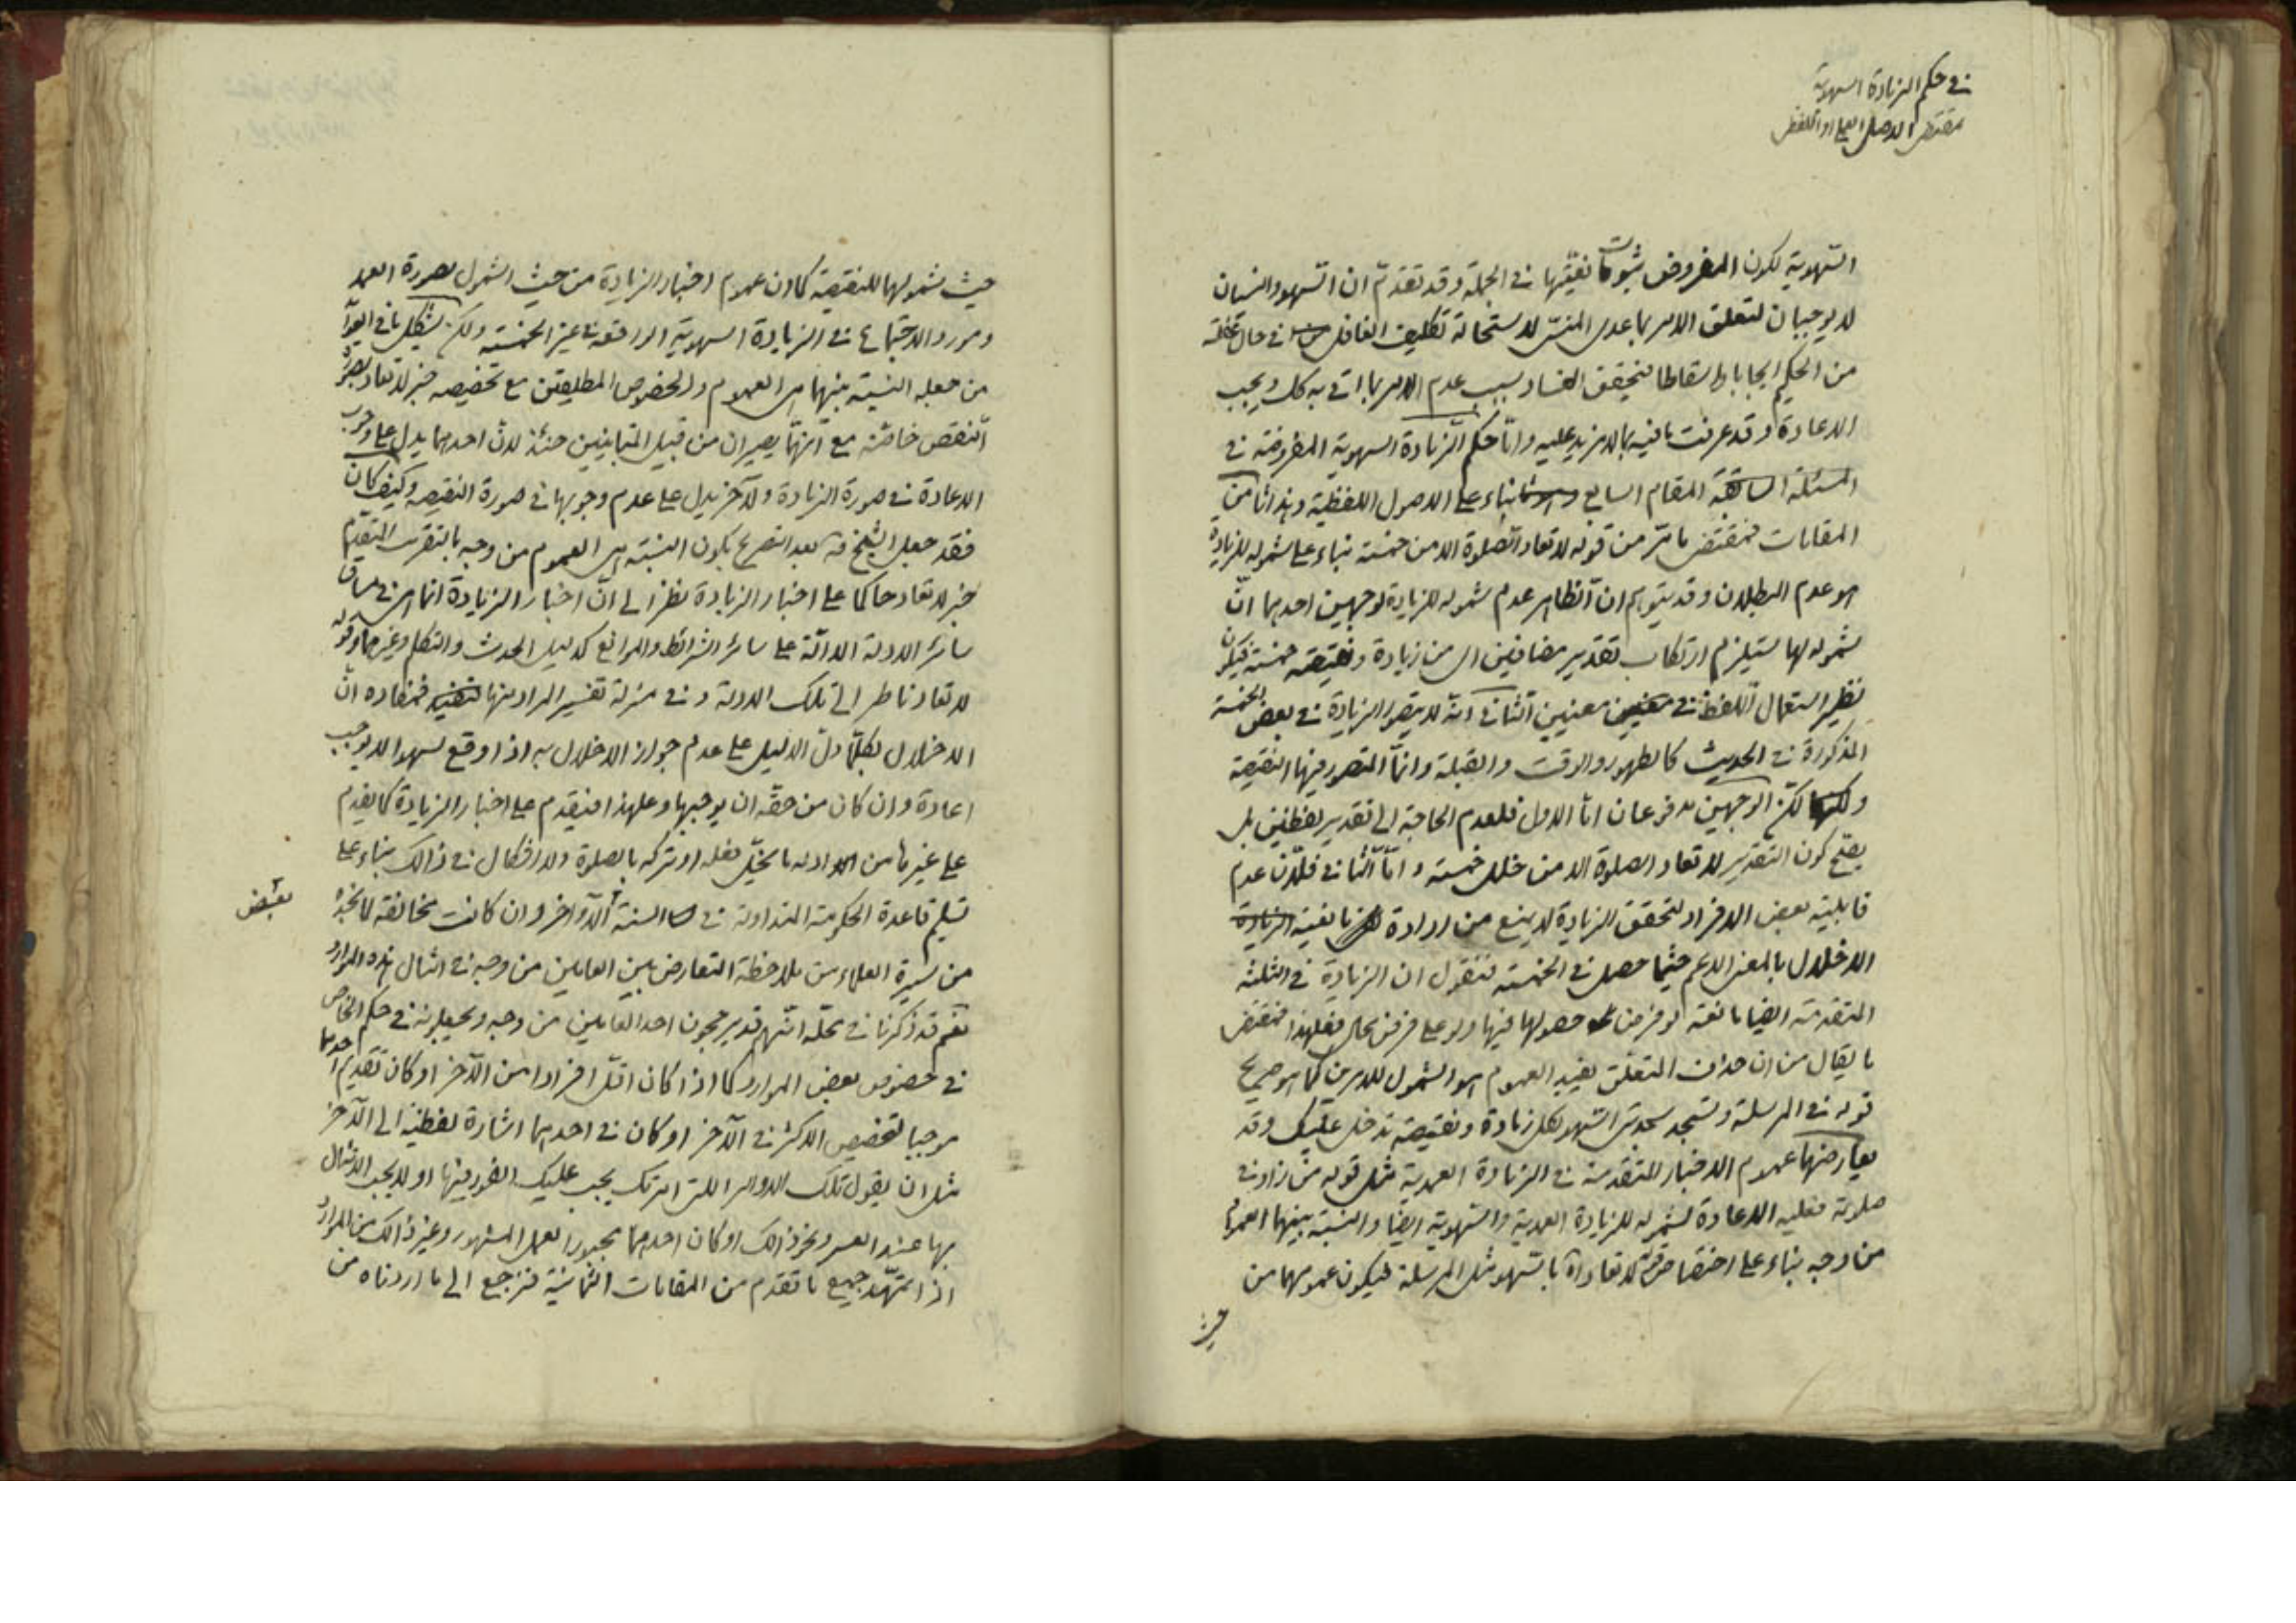 في حكم الزيادة السهوية
بمقتضى الاصل العملي او اللفظي
السهوية لكون المفروض ثبوت نفيها في الجملة وقد تقدم ان السهو والنسيان
لا يوجبان لتعلق الامر بما عدى المنسي لاستحالة تكليف الغافل في حال غفلته
من الحكم ايجابا واسقاطا فيتحقق الفساد بسبب عدم الامر بما اتى به كك ويجب
الاعادة وقد عرفت ما فيه بما لا مزيد عليه واما حكم الزيادة السهوية المفروضة في
المسئلة السابقة المقام السابع بناء على الاصول اللفظية وهذا ثامن
المقامات فمقتضى ما مر من قوله لا تعاد الصلوة الا من خمسة بناء على شموله للزيادة
هو عدم البطلان وقد يتوهم ان الظاهر عدم شموله للزيادة لوجهين احدهما ان
شموله لها يستلزم ارتكاب تقدير مضافين اي من زيادة ونقيصة خمسة فيكون
نظير استعمال اللفظ في معنيين الثاني انه لا يتصور الزيادة في بعض الخمسة
المذكورة في الحديث كالطهور والوقت والقبلة وانما المتصور فيها النقيصة
ولكن الوجهين مدفوعان اما الاول فلعدم الحاجة الى تقدير لفظين بل
يصح كون التقدير لا تعاد الصلوة الا من خلل خمسة واما الثاني فلان عدم
قابلية بعض الافراد لتحقق الزيادة لا يمنع من ارادة
الاخلال بالمعنى الاعم حيثما حصل في الخمسة فنقول ان الزيادة في الثلثة
المتقدمة ايضا مانعة لو فرض حصولها فيها ولو على فرض محال فعلى هذا فمقتضى
ما يقال من ان حذف المتعلق يفيد العموم هو الشمول للامرين كما هو صريح
قوله في المرسلة وتسجد سجدتي السهو لكل زيادة ونقيصة تدخل عليك وقد
يعارضها عموم الاخبار المتقدمة في الزيادة العمدية مثل قوله من زاد في
صلوته فعليه الاعادة لشموله للزيادة العمدية والسهوية ايضا والنسبة بينهما العموم
من وجه بناء على اختصاص لا تعاد بالسهو مثل المرسلة فيكون عمومهما من
حيث
حيث شمولها للنقيصة كما ان عموم اخبار الزيادة من حيث الشمول لصورة العمد
ومورد الاجتماع في الزيادة السهوية الواقعة في غير الخمسة ولكن يشكل
من جعله النسبة بينهما هي العموم والخصوص المطلقين مع تخصيصه خبر لا تعاد بصورة
النقص خاصة مع انهما يصيران من قبيل المتباينين حينئذ لان احدهما يدل على وجوب
الاعادة في صورة الزيادة والآخر يدل على عدم وجوبها في صورة النقيصة وكيف كان
فقد جعل الشيخ بعد التصريح بكون النسبة هي العموم من وجه بالتقريب المتقدم
خبر لا تعاد حاكما على اخبار الزيادة نظرا الى ان اخبار الزيادة انما هي في مساق
سائر الادلة الدالة على سائر الشرائط والموانع كدليل الحدث والتكلم وغيرهما وقوله
لا تعاد ناظر الى تلك الادلة وفي منزلة تفسير المراد منها فمفاده ان
الاخلال بكلما دل الدليل على عدم جواز الاخلال به اذا وقع سهوا لا يوجب
اعادة وان كان من حقه ان يوجبها وعلى هذا فيقدم على اخبار الزيادة كما يقدم
على غيرها من ادلة ما يخل فعله او تركه بالصلوة ولا اشكال في ذالك بناء على
تسليم قاعدة الحكومة المتداولة في السنة الاواخر وان كانت مخالفة لما نجده
بقبض
من سيرة العلماء من ملاحظة التعارض بين العامين من وجه في امثال هذه الموارد
نعم قد ذكرنا في محله انهم قد يرجحون احد العامين من وجه ويجعلونه في حكم الخاص
في خصوص بعض الموارد كما اذا كان اقل افرادا من الآخر او كان تقديم احدهما
موجبا لتخصيص الاكثر في الآخر او كان في احدهما اشارة لفظية الى الآخر
مثل ان يقول تلك الاوامر التي امرتك يجب عليك الفور فيها او لا يجب الامتثال
بها عند العسر ونحو ذالك او كان احدهما مجبورا بعمل المشهور وغير ذالك من الموارد
اذا تمهد جميع ما تقدم من المقامات الثمانية فنرجع الى ما اردناه من